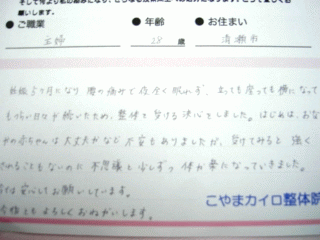 願いします。
●ご職業 ●年齢 ●お住まい
主婦 28歳 清瀬市
妊娠5ヶ月になり、腰の痛みで夜今く眠れず、立ても座っても横になって
もつらい日々が続いたため、整体を受ける決心をしました。はじめは、おな
かの赤ちゃんは大丈夫かなど不安もありましたが、受けてみると強く
されることもないのに不思議と少しずつ体が楽になっていきました。
は安心してお願いしています。
今後ともよろしくおねがいします。
こやまカイロ整体院